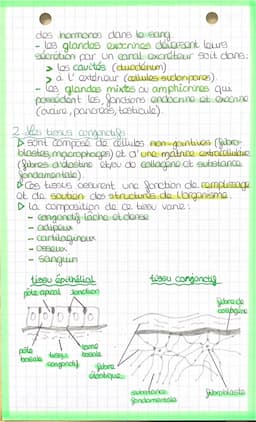 des hormones dans le sang.
- les glandes exocrines déversent leurs
sécrétion par un canal excréteur soit dans:
> les cavités (duodénum).
> à l'extérieur (cellules sudoripares).
- les glandes mixtes ou amphicrines qui
possèdent les fonctions endocrine et exocrine
(ovaire, pancréas, testicule).
2. Les tissus conjonctifs
▷ sont composé de cellules non-jointives (fibro-
blastes, macrophages) et d'une matrice extracellulaire
(fibres d'élastine et/ou de collagène et substance
fondamentale)
▷ Ces tissus assurent une fonction de remplissage
et de soutien des structures de l'organisme.
▷ la composition de ce tissu varie:
- conjonctif lâche et dense
- adipeux
- cartilagineux
- osseux
- sanguin
tissu épithélial
tissu conjonctif
pôle apical
Jonction
fibre de
collagène
pôle
basale
tissu
conjonctif
lame
basale
fibre
élastique
substance
fondamentale
fibroblaste